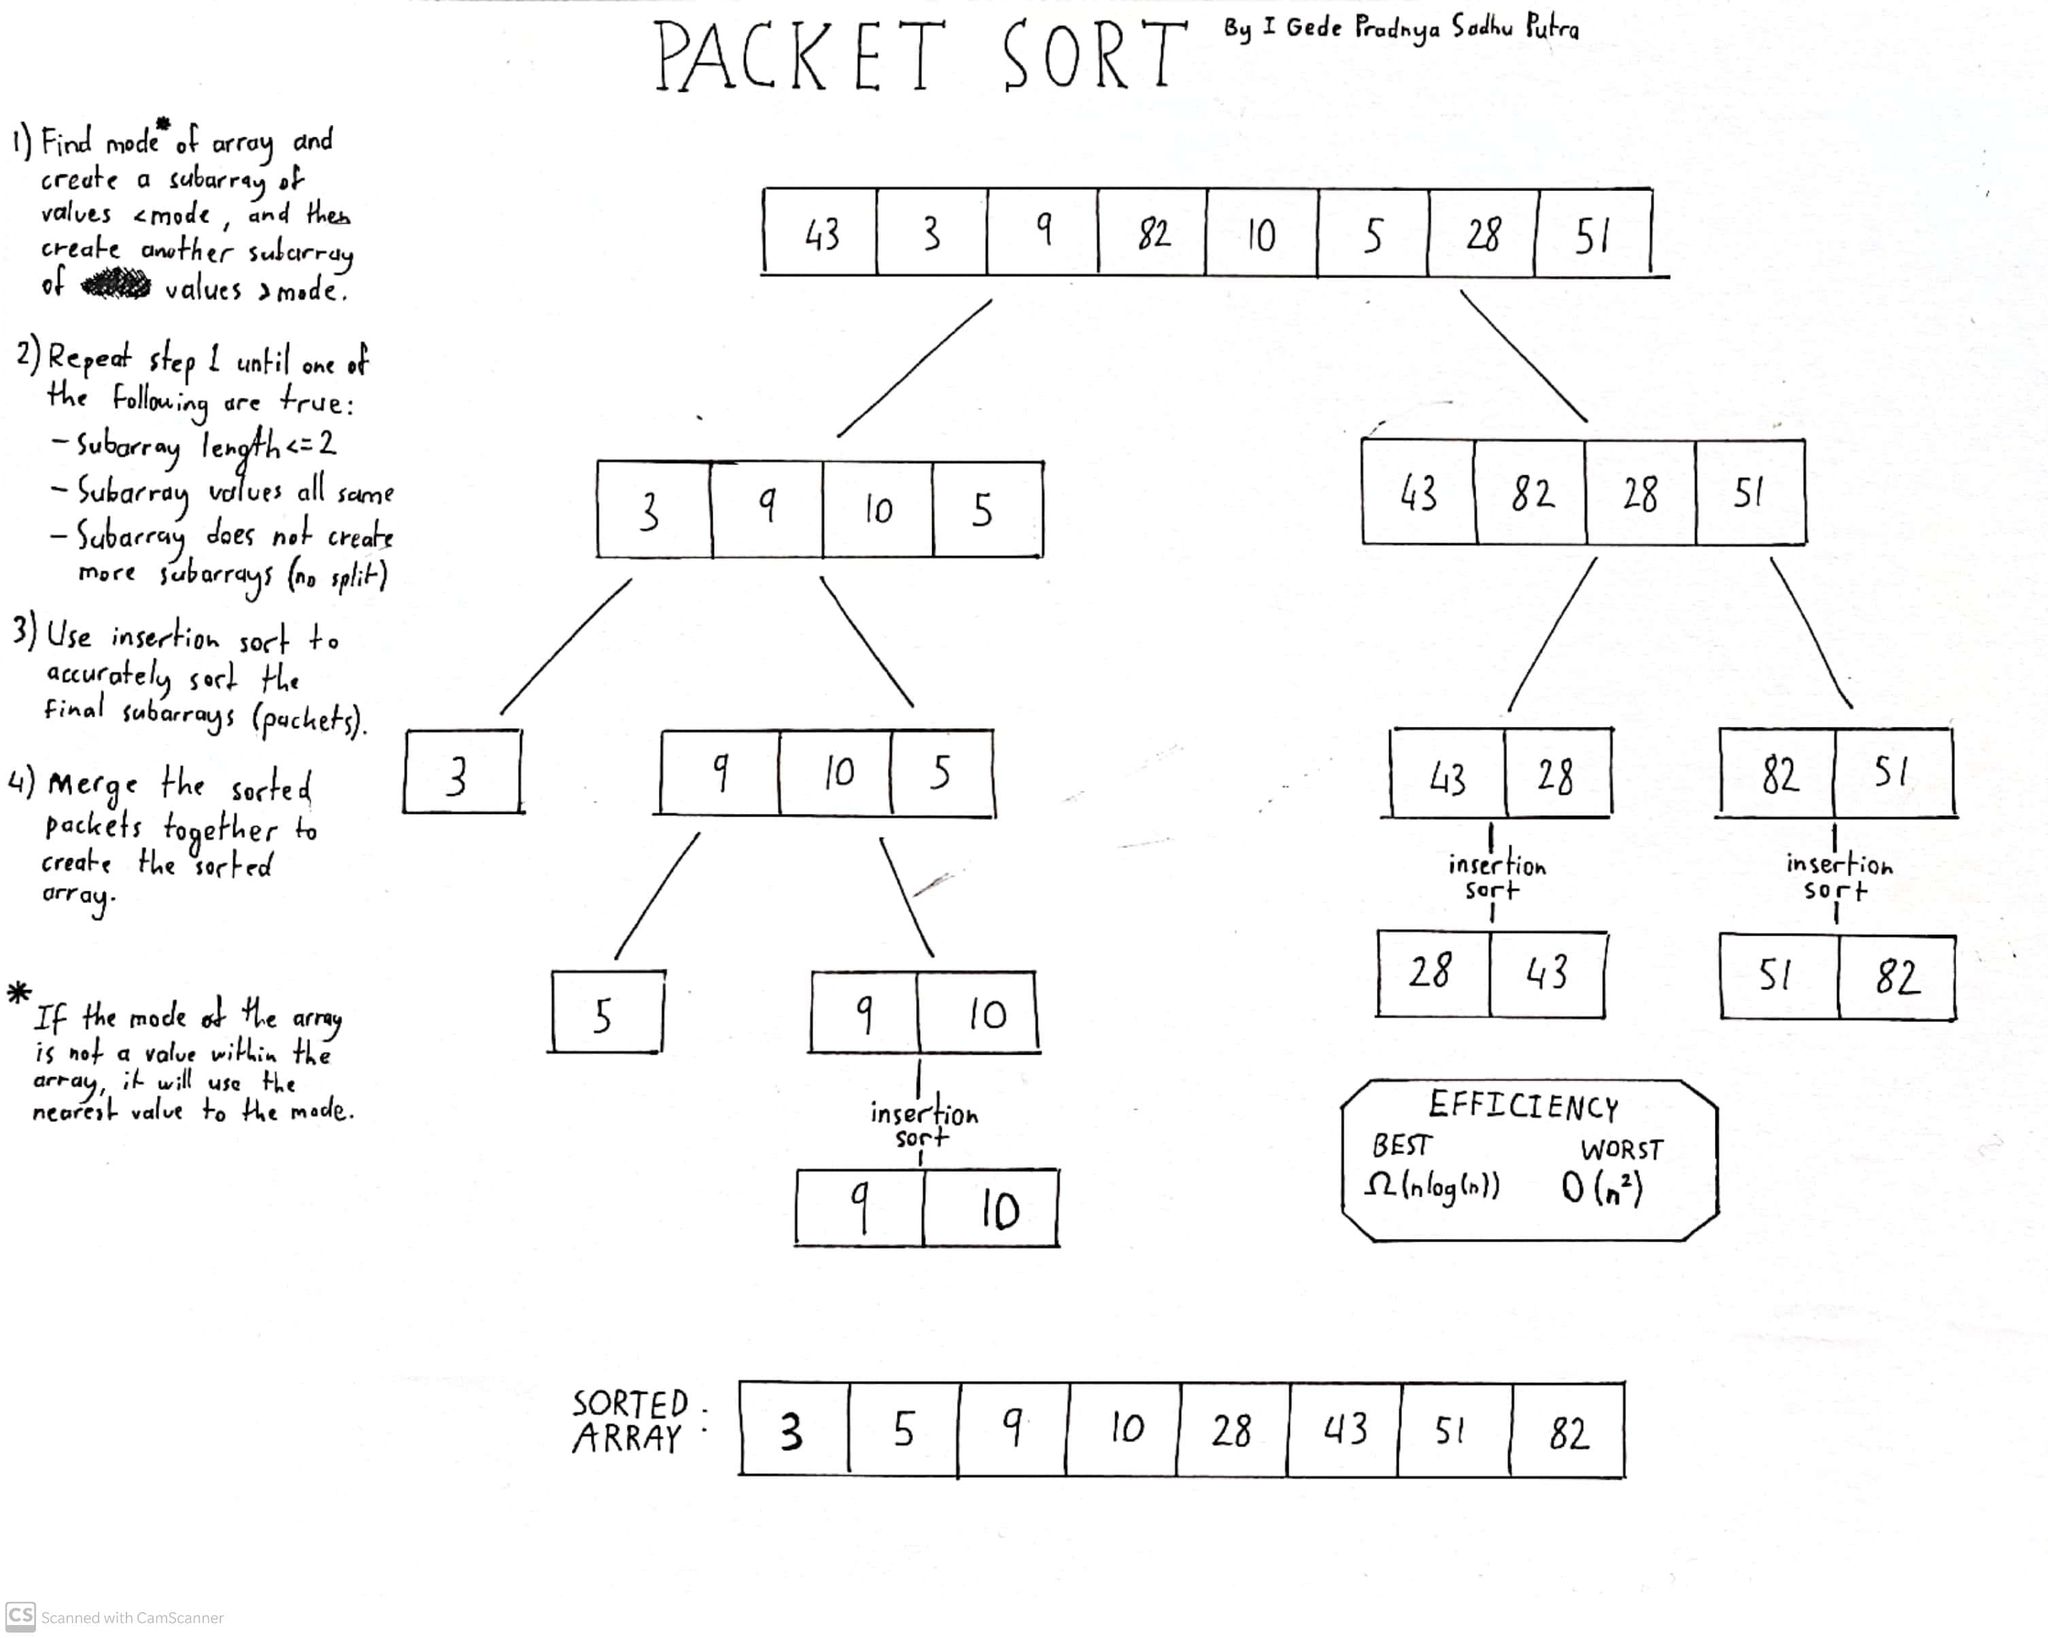 PACKET SORT By I Gede Pradnya Sadhu Putra
1) Find mode* of array and
create a subarray of
values <mode, and then
create another subarray
of values >mode.
2) Repeat step 1 until one of
the following are true:
- Subarray length<=2
- Subarray values all same
- Subarray does not create
more subarrays (no split)
3) Use insertion sort to
accurately sort the
final subarrays (packets).
4) Merge the sorted
packets together to
create the sorted
array.
* If the mode of the array
is not a value within the
array, it will use the
nearest value to the mode.
43 3 9 82 10 5 28 51
3 9 10 5
43 82 28 51
3
9 10 5
43 28
82 51
insertion
sort
insertion
sort
28 43
51 82
5
9 10
insertion
sort
9 10
EFFICIENCY
BEST WORST
Ω(nlog(n)) O(n²)
SORTED
ARRAY :
3 5 9 10 28 43 51 82
CS Scanned with CamScanner